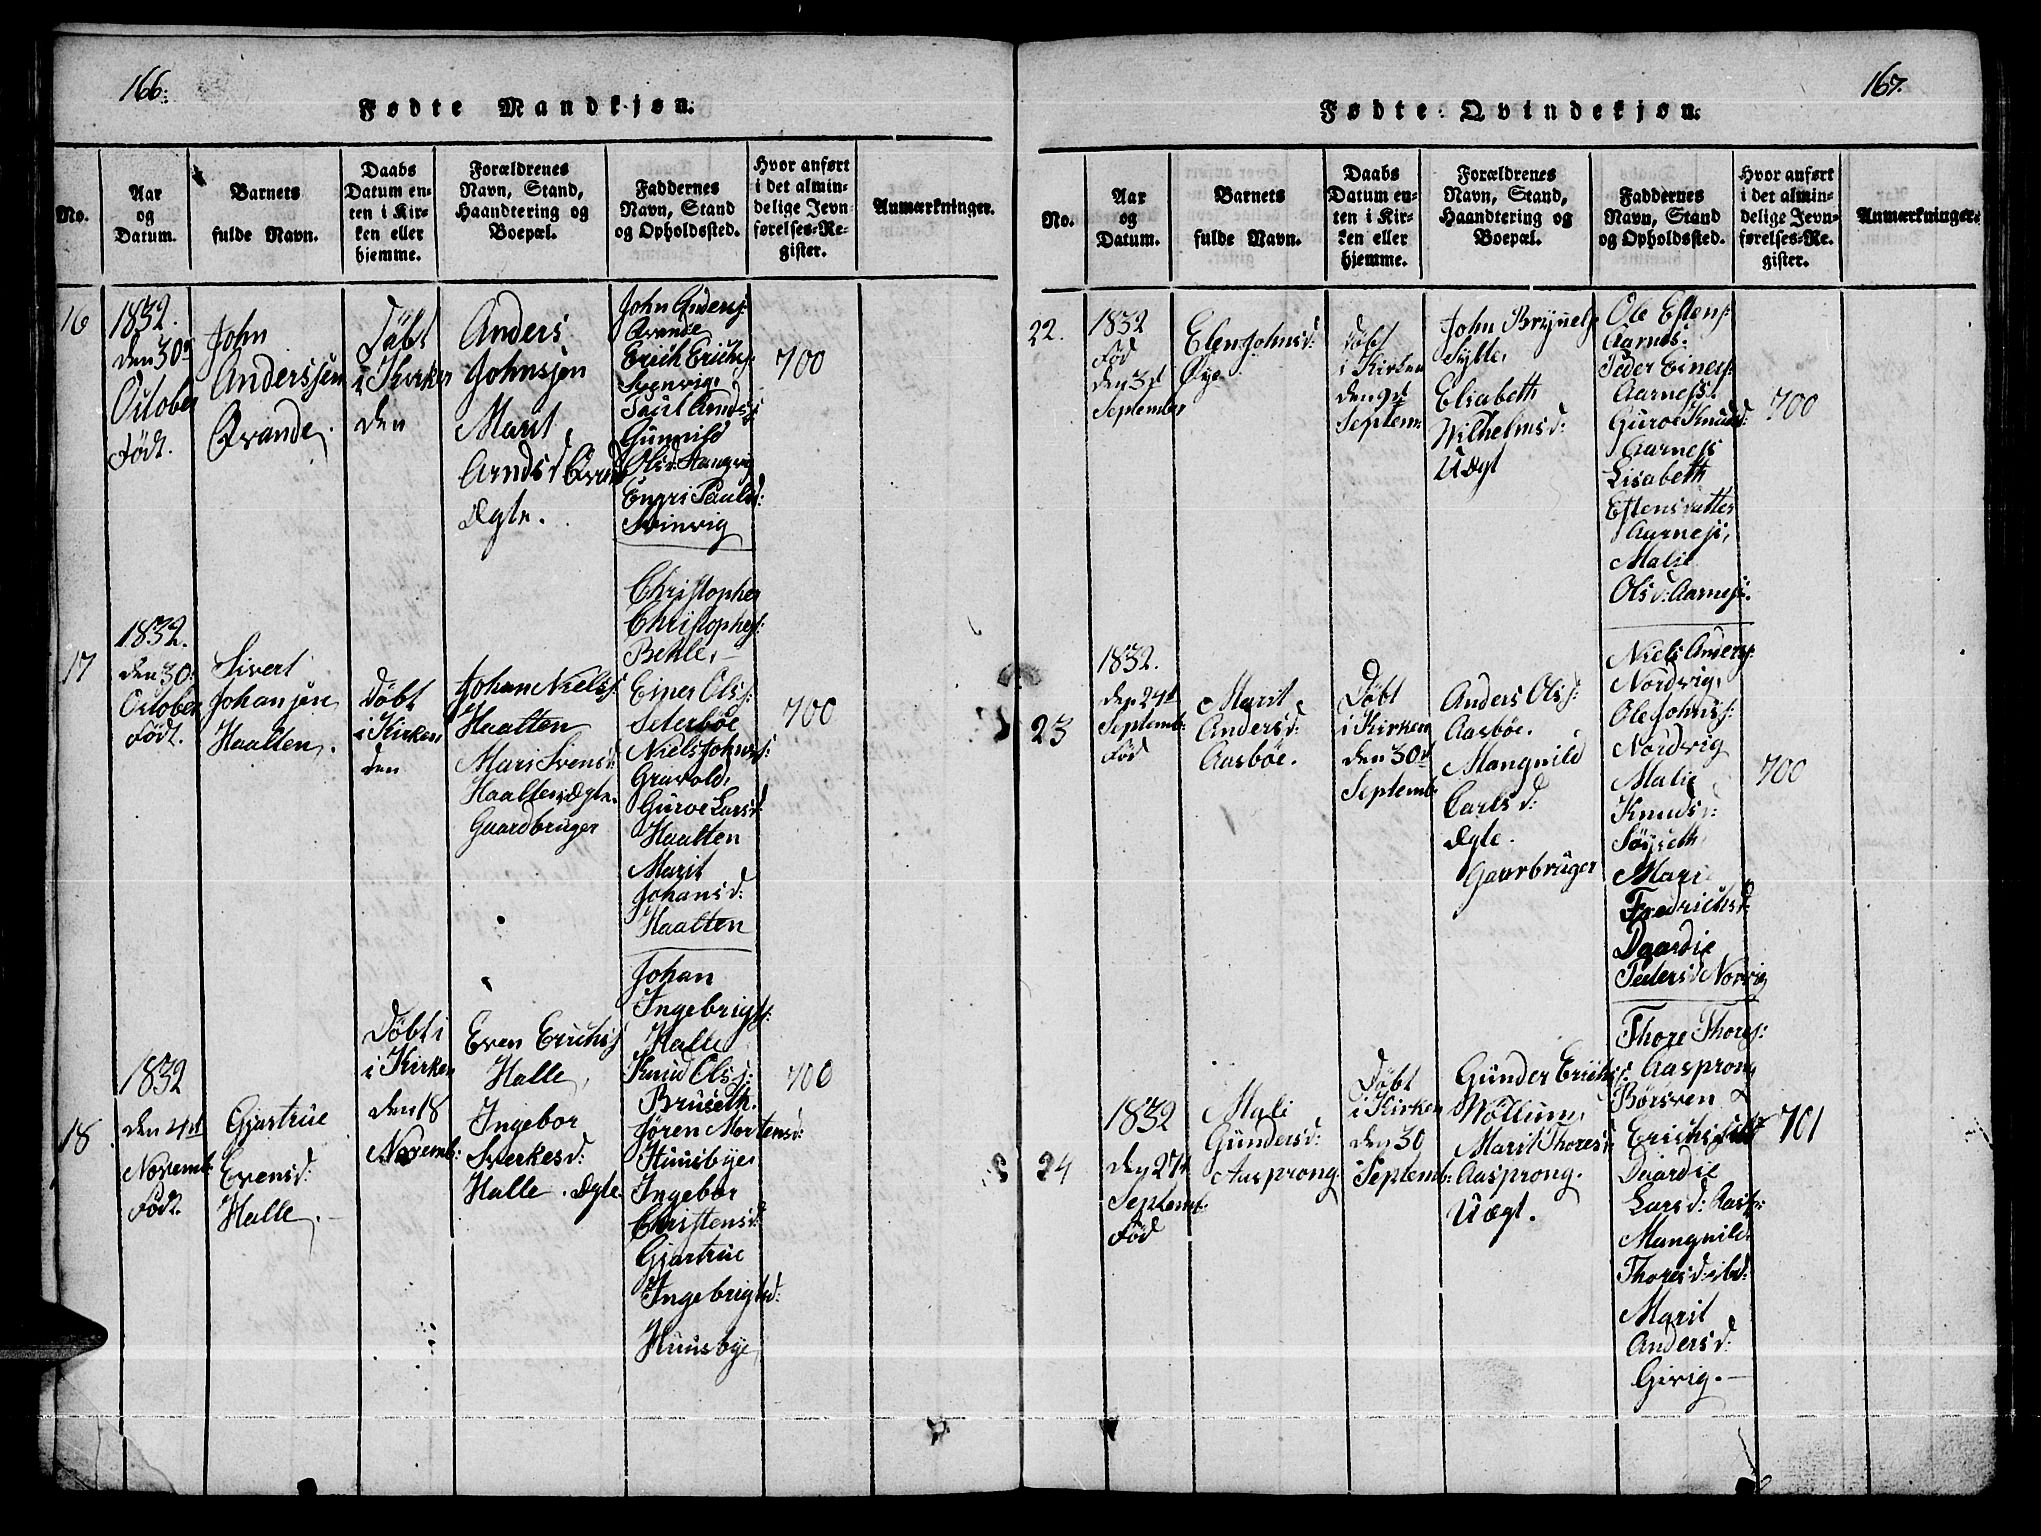 166.
Fødte Mandkjøn.
No.
Aar
og
Datum.
Barnets
fulde Navn.
Daabs
Datum en-
ten i Kir-
ken eller
hjemme.
Forældrenes
Navn, Stand,
Haandtering og
Boepæl.
Faddernes
Navn, Stand
og Opholdssted.
Hvor anført
i det almin-
delige Jevn-
førelses-Re-
gister.
Anmærkninger.
16
1832.
den 30te
October
Födt.
John
Anderssen
Qvande,
Döbt
i Kirken
den
Anders
Johnsen
Marit
Arndsd Qvand
Ægte.
John Andersj:
Qvande,
Erich Erichsj:
Svenvig,
Paul Arndsj
Gunnild
Olsd:
Engri Paulsd:
Svinvig
700
17
1832.
den 30:
October
Födt.
Sivert
Johansen
Haalten,
Döbt
i Kirken
den
Johan Nielsj:
Haalten
Mari Svensd:
Haalten, Ægte.
Gaardbruger
Christopher
Christophesj:
Behle,
Einer Olsj:
Seterböe
Niels Johnsj:
Gravold,
Guroe Larsd:
Haalten
Marit
Johansd:
Haalten
700
18
1832
den 4de
Novemb:
Födt.
Gjertrue
Evensd:
Halle,
Döbt i
i Kirken
den 18
Novemb:
Even Erichsj
Halle,
Ingebor
Sverkesd:
Halle. Ægte
Johan
Ingebrigtsj:
Halle
Knud Olsj:
Bruseth.
Jören Mortensd:
Huusbye,
Ingebor
Christensd:
Gjertrue
Ingebrigtsd:
Huusbye,
700
167.
Fødte Qvindekjøn.
No.
Aar
og
Datum.
Barnets
fulde Navn.
Daabs
Datum en-
ten i Kir-
ken eller
hjemme.
Forældrenes
Navn, Stand,
Haandtering og
Boepæl.
Faddernes
Navn, Stand
og Opholdssted.
Hvor anført
i det almin-
delige Jevn-
førelses-Re-
gister.
Anmærkninger.
22.
1832
Föd
den 3d
September
Elen Johnsd:
Öye
Döbt
i Kirken
den 9d
Septem:
John Brynelsj
Sylte,
Elisabeth
Wilhelmsd:
Uægt
Ole Estensj:
Aarnes:
Peder Einersj:
Aarness.
Guroe Knudsd:
Aarness
Lisabeth
Estensdatter
Aarness,
Malie
Olsd: Aarness.
700
23
1832.
den 24d
Septemb:
Föd
Marit
Andersd:
Aasböe.
Döbt
i Kirken
den 30d
Septemb:
Anders Olsj:
Aasböe.
Mangnild
Carlsd:
Ægte.
Gaarbruger
Niels Andersj:
Nordvig,
Ole Johnsj:
Nordvig
Malie
Knudsd:
Söyseth
Mari
Fredrichsd:
Daardie
Pedersd Norvig
700
24
1832
den 27d
Septemb:
Föd
Mali
Gundersd:
Aasprong
Döbt
i Kirken
den 30
Septemb:
Gunder Erichsj:
Möllun,
Marit Thoresd:
Aasprong.
Uægt.
Thore Thoresj:
Aasprong
Börsven
Daardie
Larsd:
Mangnild
Thoresd: ibd:
Marit
Andersd:
Girvig.
701